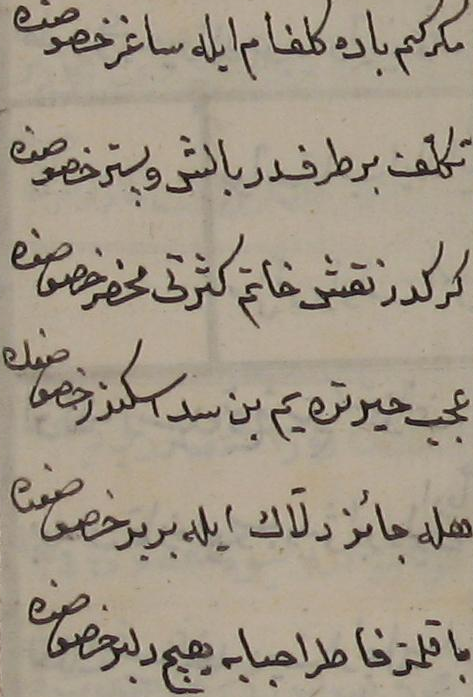 مكركيم باده كلفام ايله ساغر خصوصنده
تكلف بر طرفدر بالش و بستر خصوصنده
كركدر نقش خاتم كثرتى محضر خصوصنده
عجب حيرتده يم بن سد اسكندر خصوصنده
هله جائز دلاك ايله بربر خصوصنده
باقلمز خاطر احبابه هيچ دلبر خصوصنده